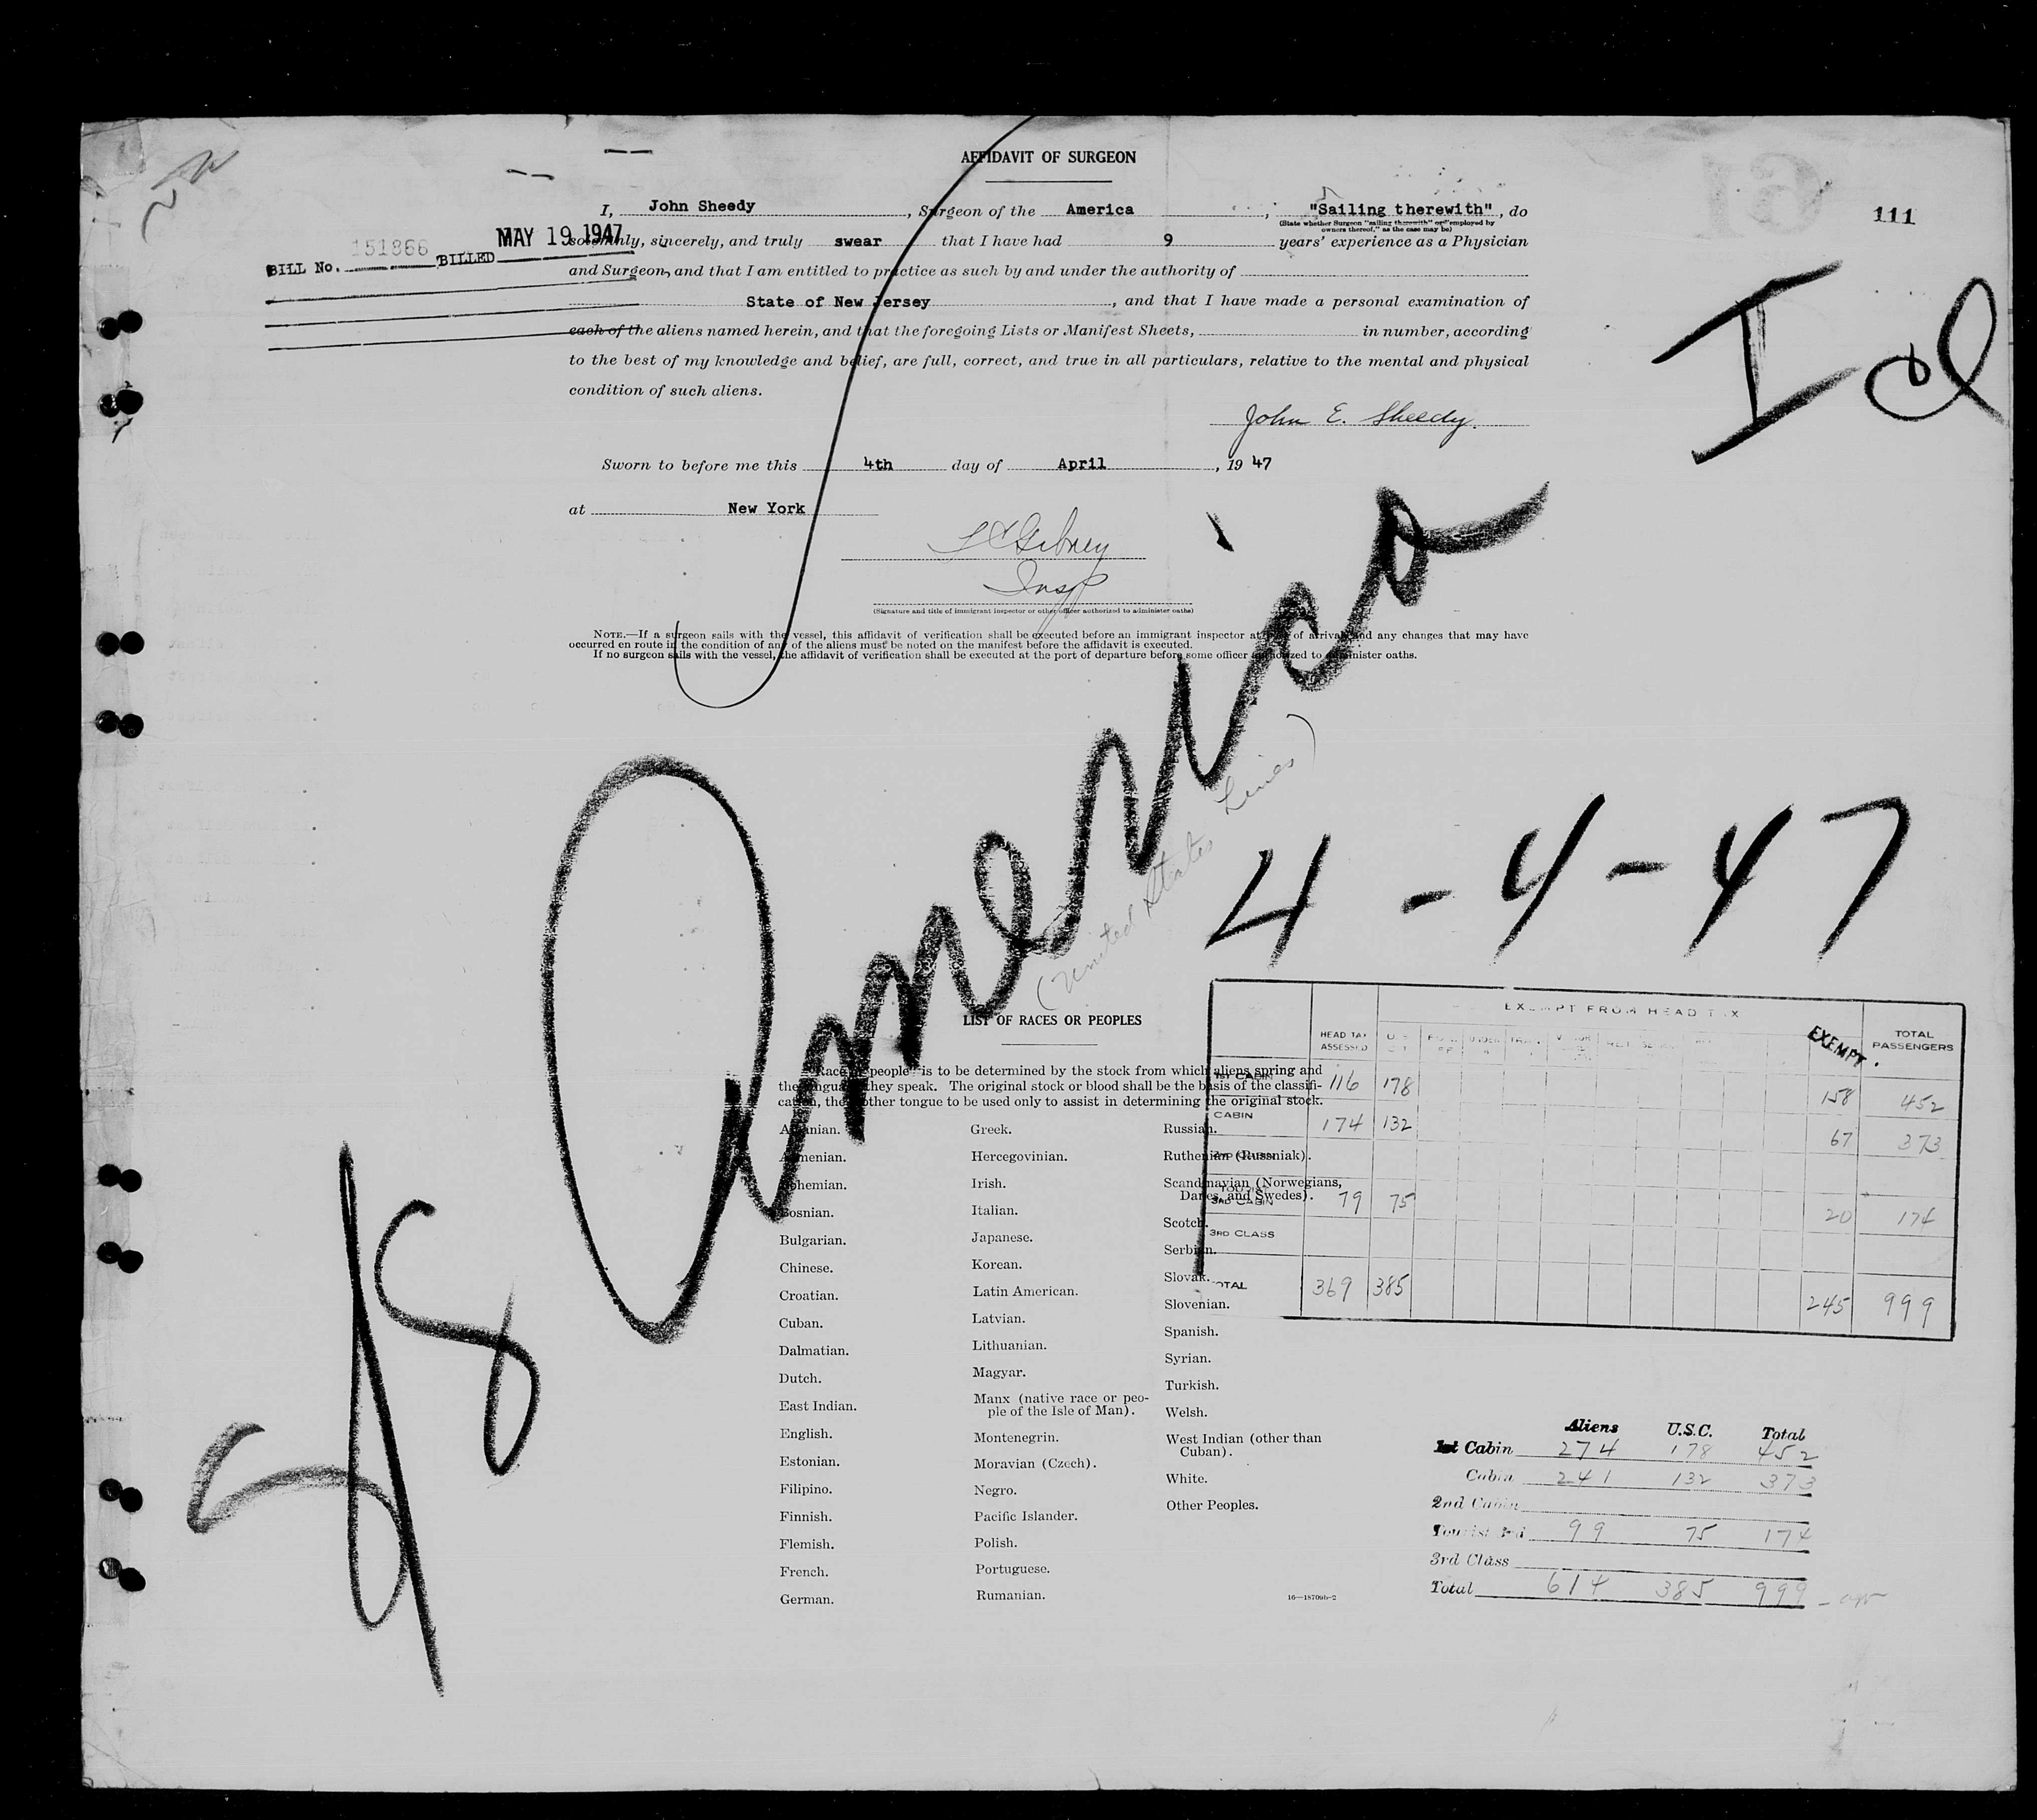 AFFIDAVIT OF SURGEON
111
I, John Sheedy, Surgeon of the America, "Sailing therewith", do
(State whether Surgeon "sailing therewith" or "employed by
owners thereof," as the case may be)
solemnly, sincerely, and truly swear that I have had 9 years' experience as a Physician
BILL No. 151866 BILLED MAY 19 1947
and Surgeon, and that I am entitled to practice as such by and under the authority of
State of New Jersey, and that I have made a personal examination of
each of the aliens named herein, and that the foregoing Lists or Manifest Sheets, in number, according
to the best of my knowledge and belief, are full, correct, and true in all particulars, relative to the mental and physical
condition of such aliens.
John E. Sheedy.
Sworn to before me this 4th day of April, 19 47
at New York
Insp
(Signature and title of immigrant inspector or other officer authorized to administer oaths)
NOTE.—If a surgeon sails with the vessel, this affidavit of verification shall be executed before an immigrant inspector at port of arrival and any changes that may have
occurred en route in the condition of any of the aliens must be noted on the manifest before the affidavit is executed.
If no surgeon sails with the vessel, the affidavit of verification shall be executed at the port of departure before some officer authorized to administer oaths.
SS America
(United States Lines)
4-4-47
LIST OF RACES OR PEOPLES
"Race or people" is to be determined by the stock from which aliens spring and
the language they speak. The original stock or blood shall be the basis of the classifi-
cation, the mother tongue to be used only to assist in determining the original stock.
Albanian.
Armenian.
Bohemian.
Bosnian.
Bulgarian.
Chinese.
Croatian.
Cuban.
Dalmatian.
Dutch.
East Indian.
English.
Estonian.
Filipino.
Finnish.
Flemish.
French.
German.
Greek.
Hercegovinian.
Irish.
Italian.
Japanese.
Korean.
Latin American.
Latvian.
Lithuanian.
Magyar.
Manx (native race or peo-
ple of the Isle of Man).
Montenegrin.
Moravian (Czech).
Negro.
Pacific Islander.
Polish.
Portuguese.
Rumanian.
Russian.
Ruthenian (Russniak).
Scandinavian (Norwegians,
Danes, and Swedes).
Scotch.
Serbian.
Slovak.
Slovenian.
Spanish.
Syrian.
Turkish.
Welsh.
West Indian (other than
Cuban).
White.
Other Peoples.
16—18709b-2
EXEMPT FROM HEAD TAX
HEAD TAX ASSESSED EXEMPT. TOTAL PASSENGERS
1ST CABIN 116 178 158 452
CABIN 174 132 67 373
2ND CABIN
TOURIST 3RD CABIN 79 75 20 174
3RD CLASS
TOTAL 369 385 245 999
Aliens U.S.C. Total
1st Cabin 274 178 452
Cabin 241 132 373
2nd Cabin
Tourist 3rd 99 75 174
3rd Class
Total 614 385 999